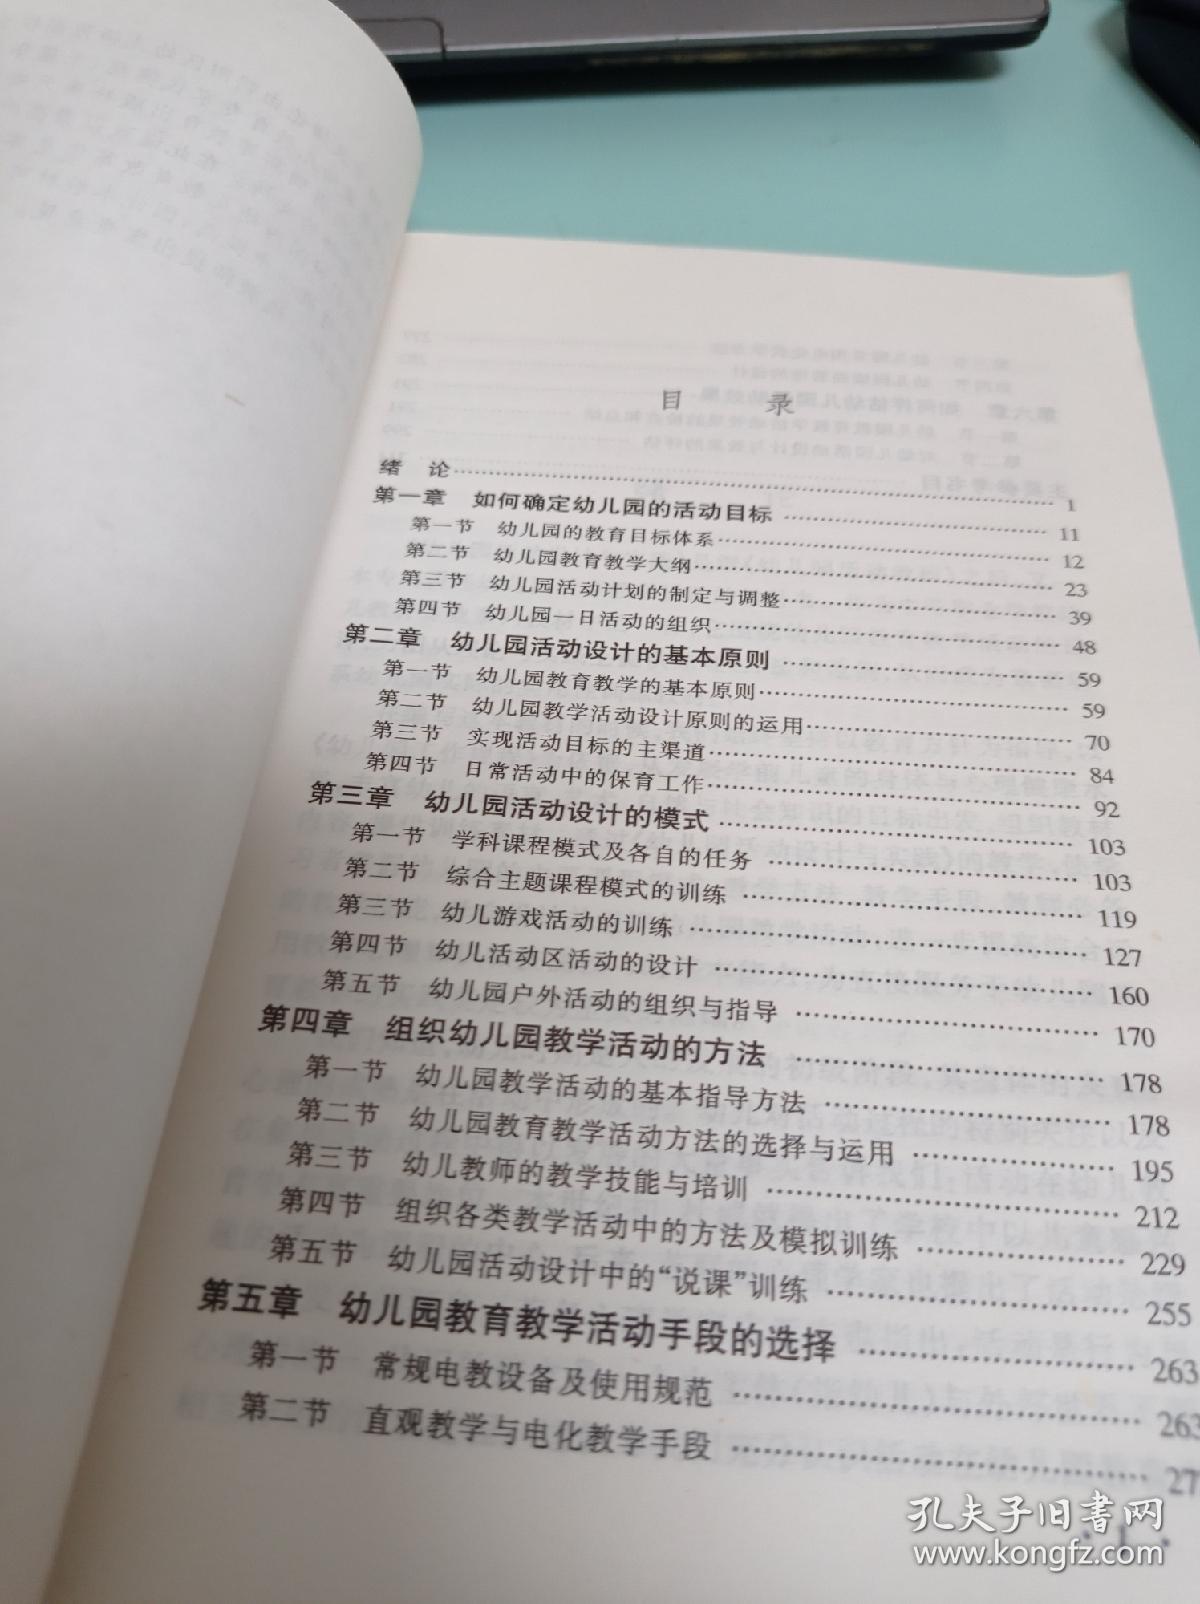 目 录
绪 论 1
第一章 如何确定幼儿园的活动目标 11
第一节 幼儿园的教育目标体系 12
第二节 幼儿园教育教学大纲 23
第三节 幼儿园活动计划的制定与调整 39
第四节 幼儿园一日活动的组织 48
第二章 幼儿园活动设计的基本原则 59
第一节 幼儿园教育教学的基本原则 59
第二节 幼儿园教学活动设计原则的运用 70
第三节 实现活动目标的主渠道 84
第四节 日常活动中的保育工作 92
第三章 幼儿园活动设计的模式 103
第一节 学科课程模式及各自的任务 103
第二节 综合主题课程模式的训练 119
第三节 幼儿游戏活动的训练 127
第四节 幼儿活动区活动的设计 160
第五节 幼儿园户外活动的组织与指导 170
第四章 组织幼儿园教学活动的方法 178
第一节 幼儿园教学活动的基本指导方法 178
第二节 幼儿园教育教学活动方法的选择与运用 195
第三节 幼儿教师的教学技能与培训 212
第四节 组织各类教学活动中的方法及模拟训练 229
第五节 幼儿园活动设计中的“说课”训练 255
第五章 幼儿园教育教学活动手段的选择 263
第一节 常规电教设备及使用规范 263
第二节 直观教学与电化教学手段 27
· 1 ·
孔夫子旧书网
www.kongfz.com